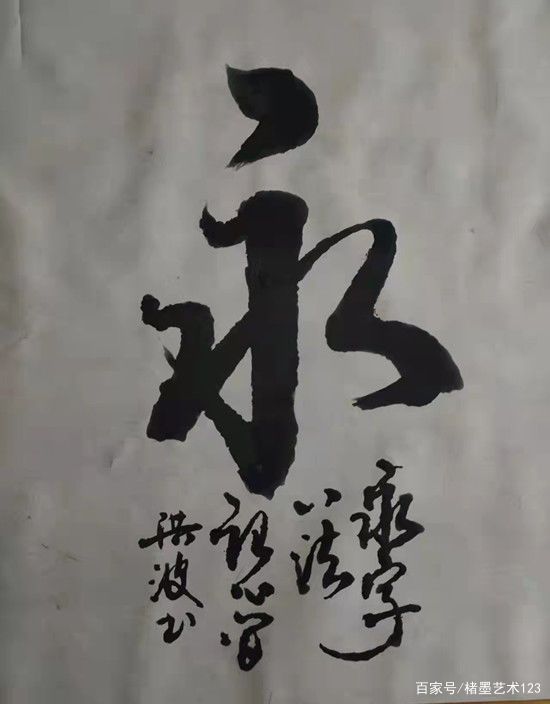 永
永字
八法
心
波书
百家号/楮墨艺术123